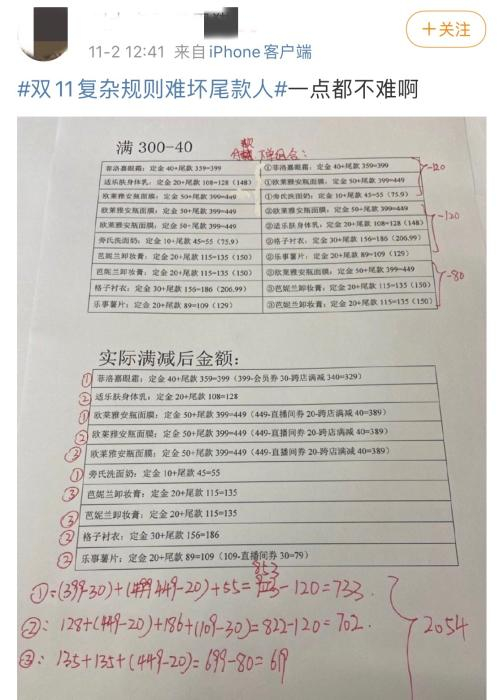 11-2 12:41 来自 iPhone客户端
+关注
#双11复杂规则难坏尾款人#一点都不难啊
满 300-40
付款 下单组合：
菲洛嘉眼霜：定金 40+尾款 359=399 ①菲洛嘉眼霜：定金 40+尾款 359=399
适乐肤身体乳：定金 20+尾款 108=128（148） ①欧莱雅安瓶面膜：定金 50+尾款 399=449
欧莱雅安瓶面膜：定金 50+尾款 399=449 ①旁氏洗面奶：定金 10+尾款 45=55（75.9）
-120
欧莱雅安瓶面膜：定金 50+尾款 399=449 ②欧莱雅安瓶面膜：定金 50+尾款 399=449
欧莱雅安瓶面膜：定金 50+尾款 399=449 ②适乐肤身体乳：定金 20+尾款 108=128（148）
旁氏洗面奶：定金 10+尾款 45=55（75.9） ②格子衬衣：定金 30+尾款 156=186（206.99）
芭妮兰卸妆膏：定金 20+尾款 115=135（150） ②乐事薯片：定金 20+尾款 89=109（129）
-120
芭妮兰卸妆膏：定金 20+尾款 115=135（150） ③欧莱雅安瓶面膜：定金 50+尾款 399=449
格子衬衣：定金 30+尾款 156=186（206.99） ③芭妮兰卸妆膏：定金 20+尾款 115=135（150）
乐事薯片：定金 20+尾款 89=109（129） ③芭妮兰卸妆膏：定金 20+尾款 115=135（150）
-80
实际满减后金额：
① 菲洛嘉眼霜：定金 40+尾款 359=399（399-会员券 30-跨店满减 340=329）
② 适乐肤身体乳：定金 20+尾款 108=128
① 欧莱雅安瓶面膜：定金 50+尾款 399=449（449-直播间券 20-跨店满减 40=389）
② 欧莱雅安瓶面膜：定金 50+尾款 399=449（449-直播间券 20-跨店满减 40=389）
③ 欧莱雅安瓶面膜：定金 50+尾款 399=449（449-直播间券 20-跨店满减 40=389）
① 旁氏洗面奶：定金 10+尾款 45=55
③ 芭妮兰卸妆膏：定金 20+尾款 115=135
③ 芭妮兰卸妆膏：定金 20+尾款 115=135
② 格子衬衣：定金 30+尾款 156=186
② 乐事薯片：定金 20+尾款 89=109（109-直播间券 30=79）
①=(399-30)+(449-20)+55=853-120=733
②：128+(449-20)+186+(109-30)=822-120=702
③：135+135+(449-20)=699-80=619
2054